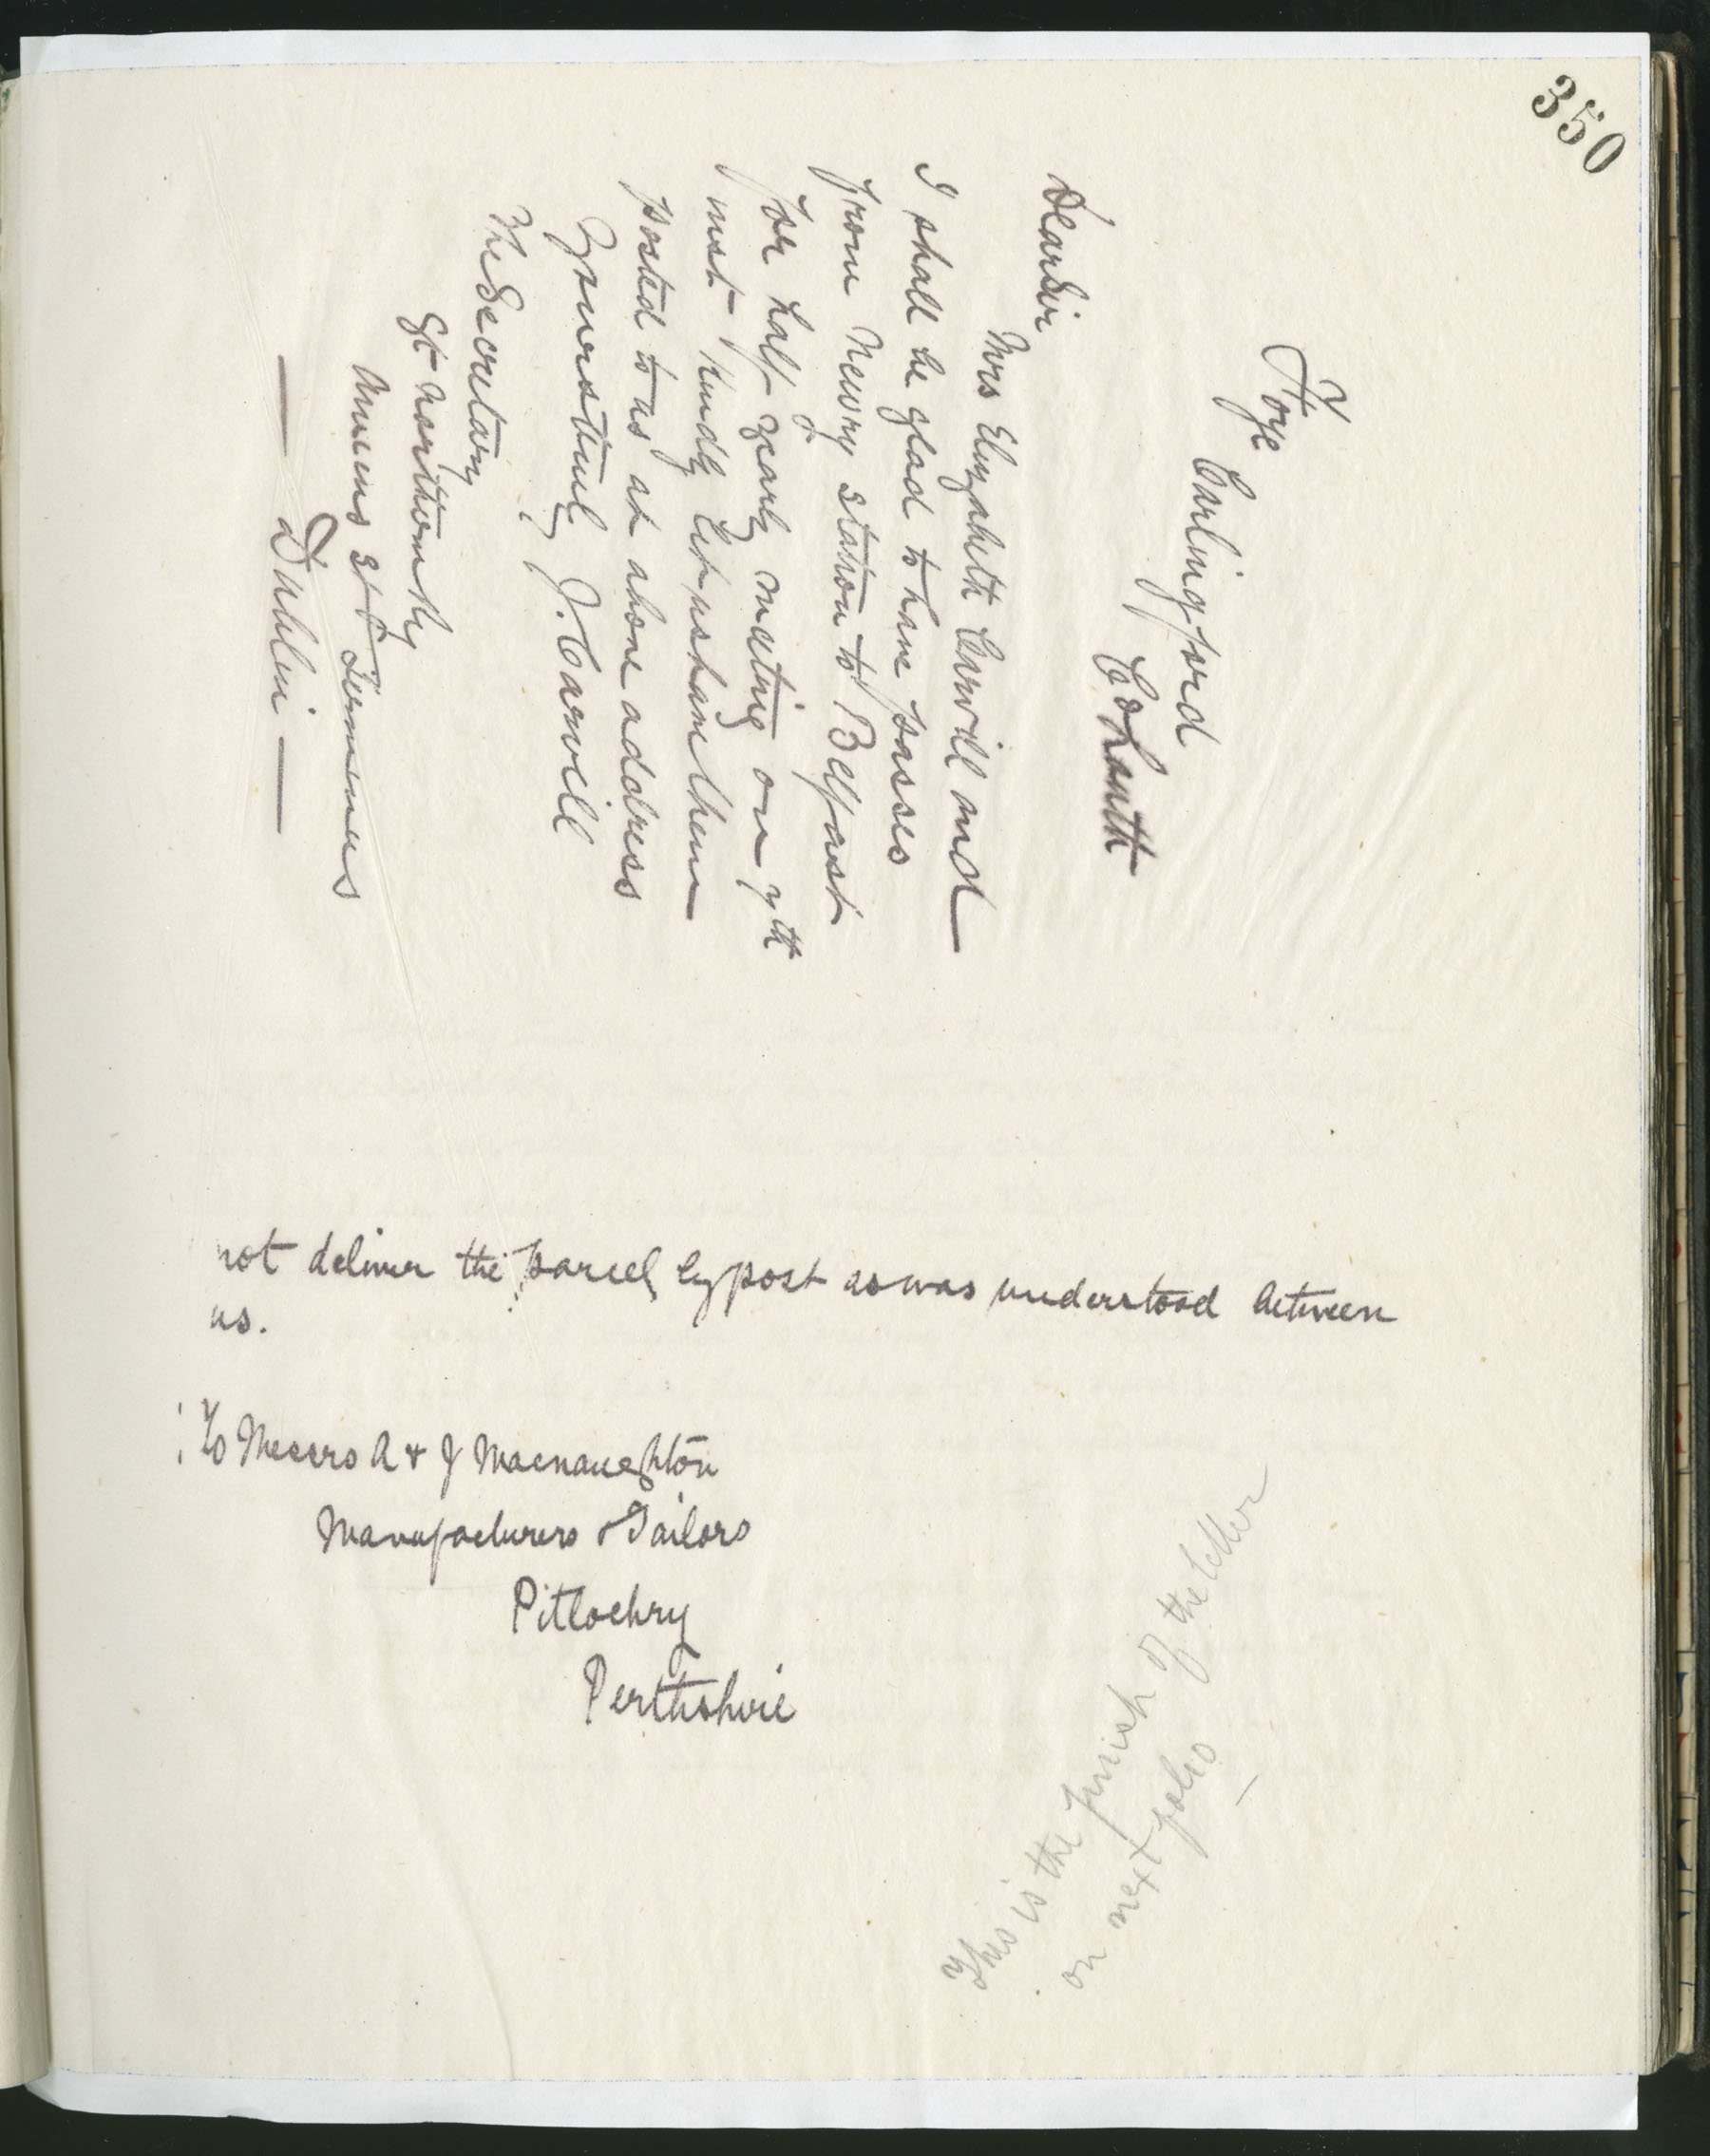 350
Foye
Carlingford
Co Louth
Dear Sir
Mrs Elizabeth Carvill and
I shall be glad to have passes
from Newry station to Belfast
for half yearly meeting on 7th
inst Kindly let us have them
posted to us at above address
Yours truly J. Carvill
The Secretary
Gt Northern Ry
Amiens St Terminus
Dublin
not deliver the parcel by post as was understood between
us.
To Messrs A & J Macnaughton
Manufacturers & Tailors
Pitlochry
Perthshire
This is the finish of the letter
on next folio